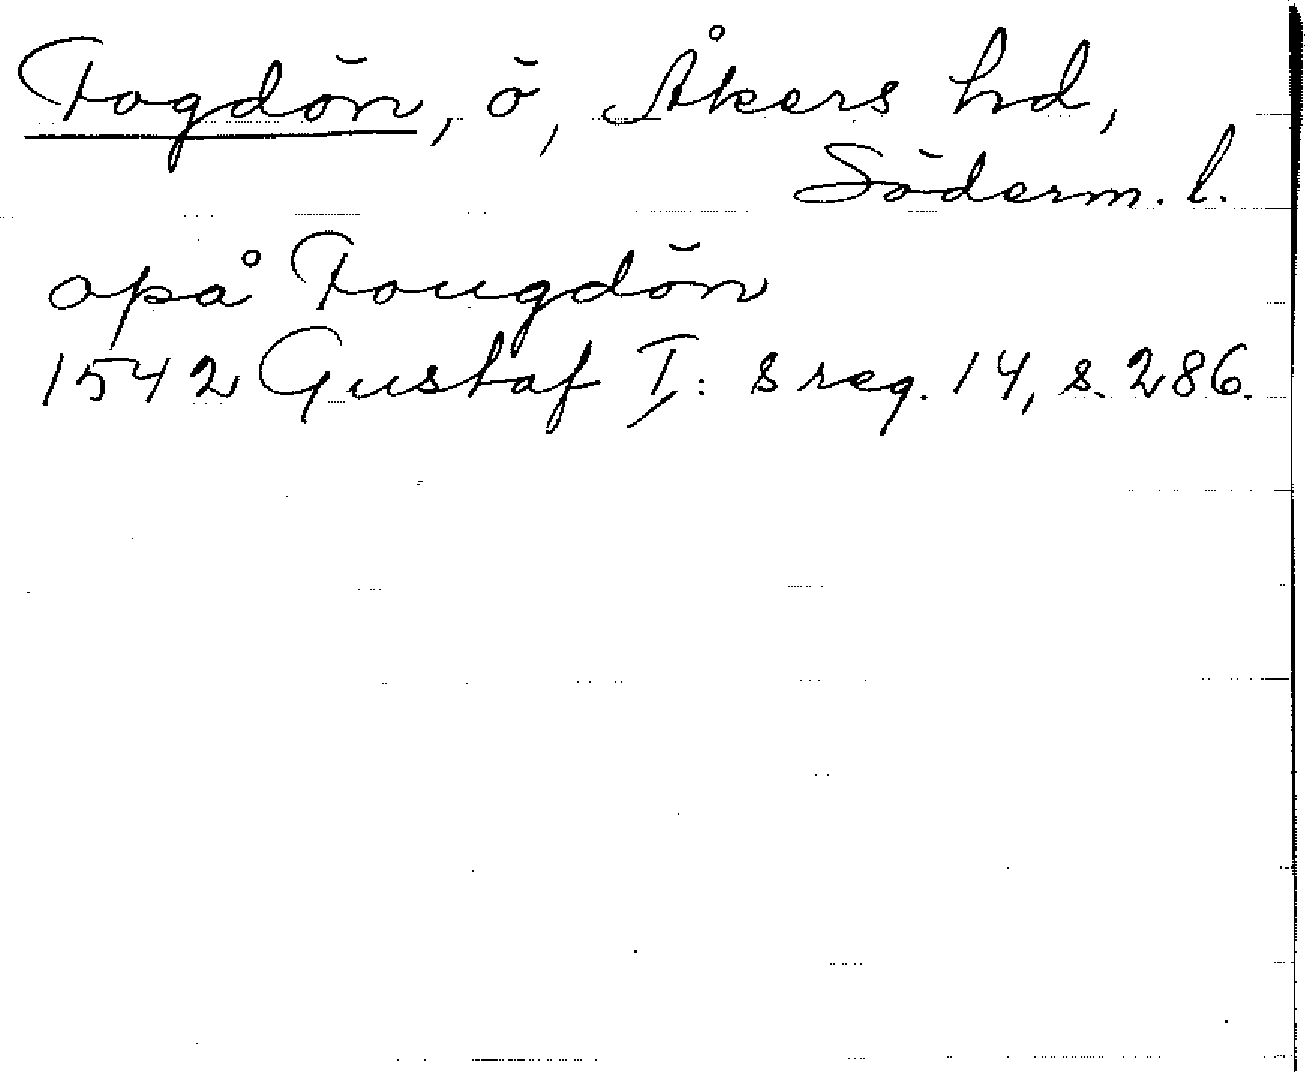 Fogdön, ö, Åkers hd,
Söderm. l.
opå Fougdön
1542 Gustaf I:s reg. 14, s. 286.